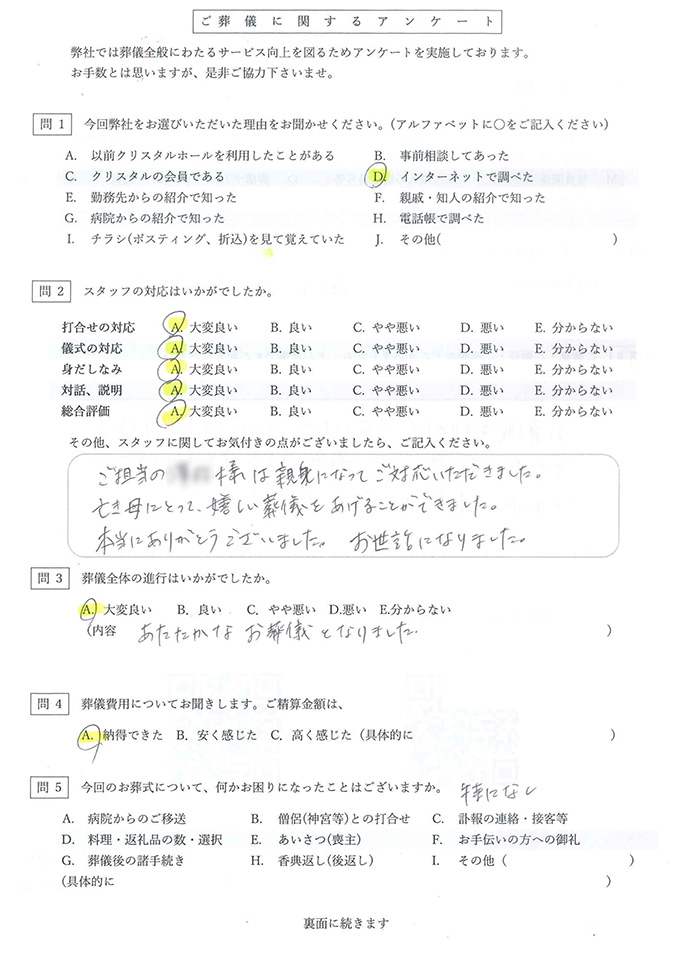 ご葬儀に関するアンケート
弊社では葬儀全般にわたるサービス向上を図るためアンケートを実施しております。
お手数とは思いますが、是非ご協力下さいませ。
問1 今回弊社をお選びいただいた理由をお聞かせください。(アルファベットに〇をご記入ください)
A. 以前クリスタルホールを利用したことがある B. 事前相談してあった
C. クリスタルの会員である D. インターネットで調べた
E. 勤務先からの紹介で知った F. 親戚・知人の紹介で知った
G. 病院からの紹介で知った H. 電話帳で調べた
I. チラシ(ポスティング、折込)を見て覚えていた J. その他( )
問2 スタッフの対応はいかがでしたか。
打合せの対応 A. 大変良い B. 良い C. やや悪い D. 悪い E. 分からない
儀式の対応 A. 大変良い B. 良い C. やや悪い D. 悪い E. 分からない
身だしなみ A. 大変良い B. 良い C. やや悪い D. 悪い E. 分からない
対話、説明 A. 大変良い B. 良い C. やや悪い D. 悪い E. 分からない
総合評価 A. 大変良い B. 良い C. やや悪い D. 悪い E. 分からない
その他、スタッフに関してお気付きの点がございましたら、ご記入ください。
ご担当の 様は親身になってご対応いただきました。
亡き母にとって、嬉しい葬儀をあげることができました。
本当にありがとうございました。 お世話になりました。
問3 葬儀全体の進行はいかがでしたか。
A. 大変良い B. 良い C. やや悪い D.悪い E.分からない
(内容 あたたかなお葬儀となりました. )
問4 葬儀費用についてお聞きします。ご精算金額は、
A. 納得できた B. 安く感じた C. 高く感じた (具体的に )
問5 今回のお葬式について、何かお困りになったことはございますか。 特になし
A. 病院からのご移送 B. 僧侶(神宮等)との打合せ C. 訃報の連絡・接客等
D. 料理・返礼品の数・選択 E. あいさつ(喪主) F. お手伝いの方への御礼
G. 葬儀後の諸手続き H. 香典返し(後返し) I. その他 ( )
(具体的に )
裏面に続きます